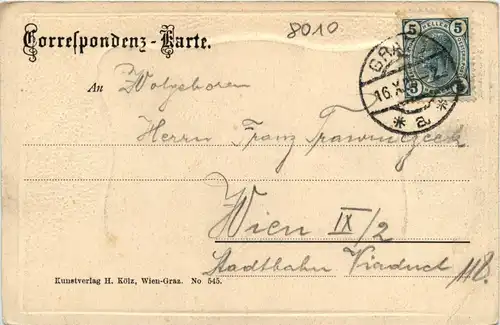 8010
Correspondenz-Karte.
5 HELLER 5
GRAZ
16.X
* a *
An Wolgeboren
Herrn Franz Trawniczeck
Wien IX/2
Stadtbahn Viaduct 118.
Kunstverlag H. Kölz, Wien-Graz. No 545.